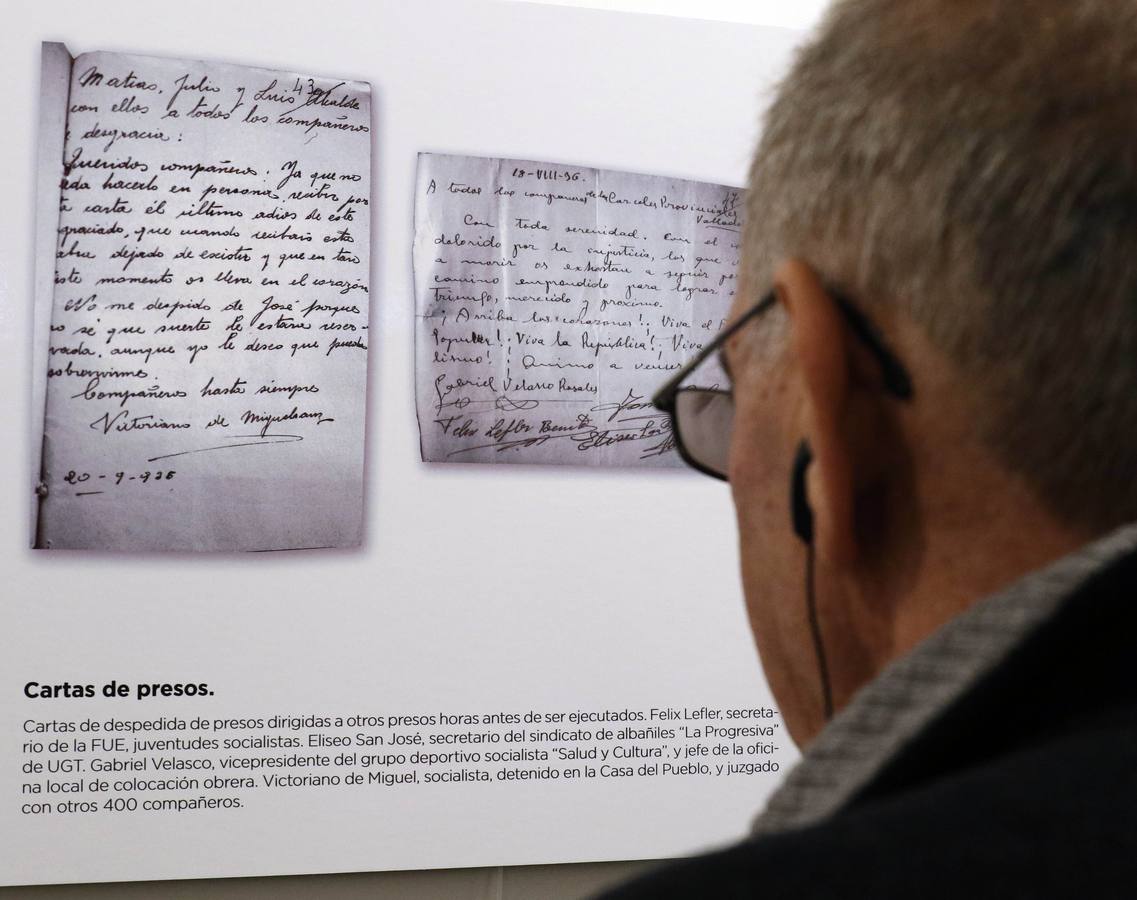 Matias, Julio y Luis Alcalde
con ellos a todos los compañeros
desgracia:
Queridos compañeros. Ya que no
hacerlo en persona, recibir por
carta el ultimo adios de este
graciado, que cuando recibais esta
dejado de existir y que en tan
este momento os lleva en el corazón
No me despido de José porque
no sé que suerte le estara reser-
vada, aunque yo le deseo que pueda
sobrevivirme.
Compañeros hasta siempre
Victoriano de Miguelsanz
20-9-936
18-VIII-36.
A todos los compañeros de la Carceles Provinciales
Con toda serenidad. Con el
dolorido por la injusticia, los que
a morir os exhortan a seguir
camino emprendido para lograr
triunfo, merecido y proximo.
¡Arriba los corazones! Viva el
Popular! ¡Viva la República! Viva
lismo! ¡Animo a vencer
Gabriel Velasco Rosales
Felix Lefler Benito Eliseo
Cartas de presos.
Cartas de despedida de presos dirigidas a otros presos horas antes de ser ejecutados. Felix Lefler, secreta-
rio de la FUE, juventudes socialistas. Eliseo San José, secretario del sindicato de albañiles “La Progresiva”
de UGT. Gabriel Velasco, vicepresidente del grupo deportivo socialista “Salud y Cultura”, y jefe de la ofici-
na local de colocación obrera. Victoriano de Miguel, socialista, detenido en la Casa del Pueblo, y juzgado
con otros 400 compañeros.